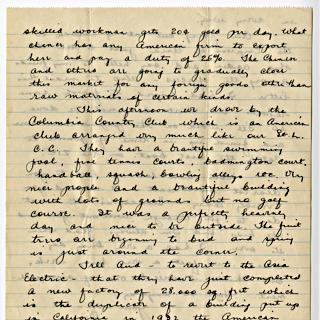 skilled workman gets 20¢ gold per day. What
chance has any American firm to export
here and pay a duty of 25%. The Chinese
and others are going to gradually close
this market for any foreign goods other than
raw materials of certain kinds.
This afternoon we drove by the
Columbia Country Club which is an American
club arranged very much like our
C.C. They have a beautiful swimming
pool, fine tennis courts, badmington court,
handball, squash, bowling alleys etc. Very
nice people and a beautiful building
with lots of grounds but no golf
course. It was a perfectly heavenly
day and nice to be outside. The fruit
trees are beginning to bud and spring
is just around the corner.
Tell And to revert to the Asia
Electric - that they have just completed
a new factory of 28,000 sq. feet which
is the duplicate of a building put up
in California in 1932 the American